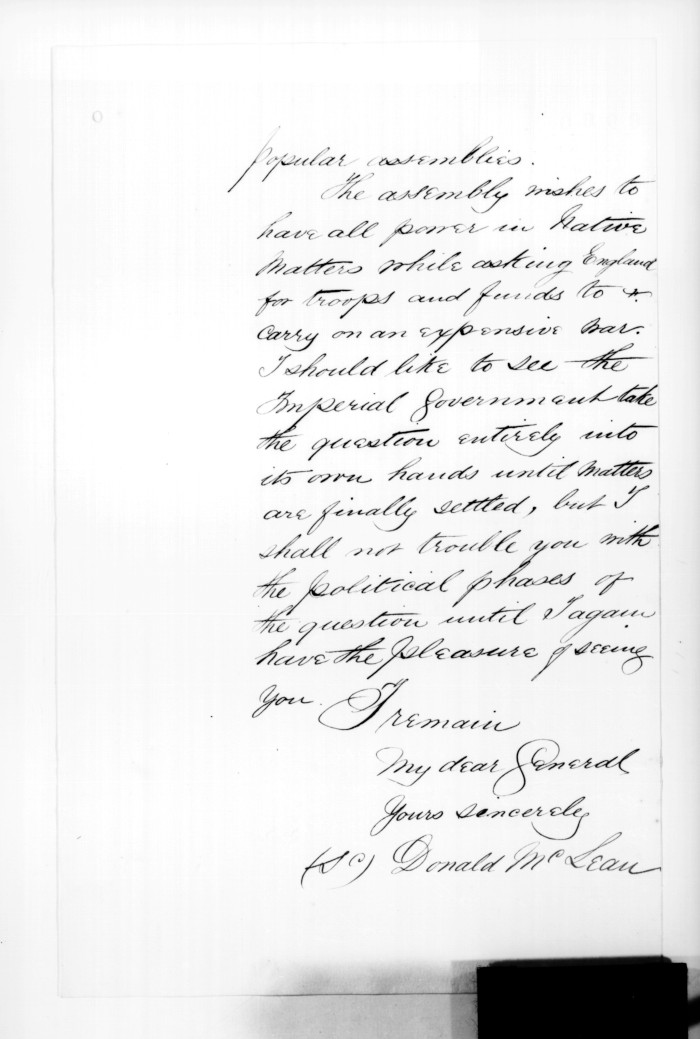 popular assemblies.
The assembly wishes to
have all power in Native
Matters while asking England
for troops and funds to
carry on an expensive war.
I should like to see the
Imperial Government take
the question entirely into
its own hands until matters
are finally settled, but I
shall not trouble you with
the political phases of
the question until I again
have the pleasure of seeing
you.
I remain
My dear General
Yours sincerely
Donald McLean